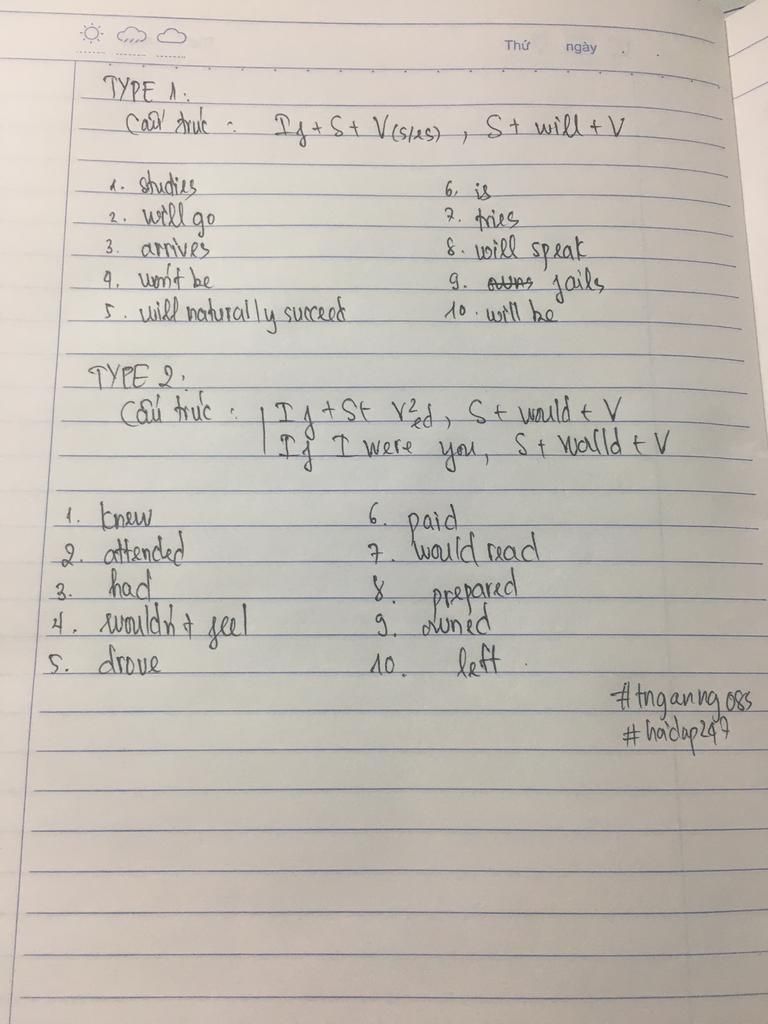 Thứ ngày
TYPE 1:
Cấu trúc : If + S + V(s/es) , S + will + V
1. studies 6. is
2. will go 7. tries
3. arrives 8. will speak
4. won't be 9. fails
5. will naturally succeed 10. will be
TYPE 2:
Cấu trúc : If + S + V2ed, S + would + V
If I were you, S + would + V
1. knew 6. paid
2. attended 7. would read
3. had 8. prepared
4. wouldn't feel 9. owned
5. drove 10. left .
#tnganng085
#hoidap247